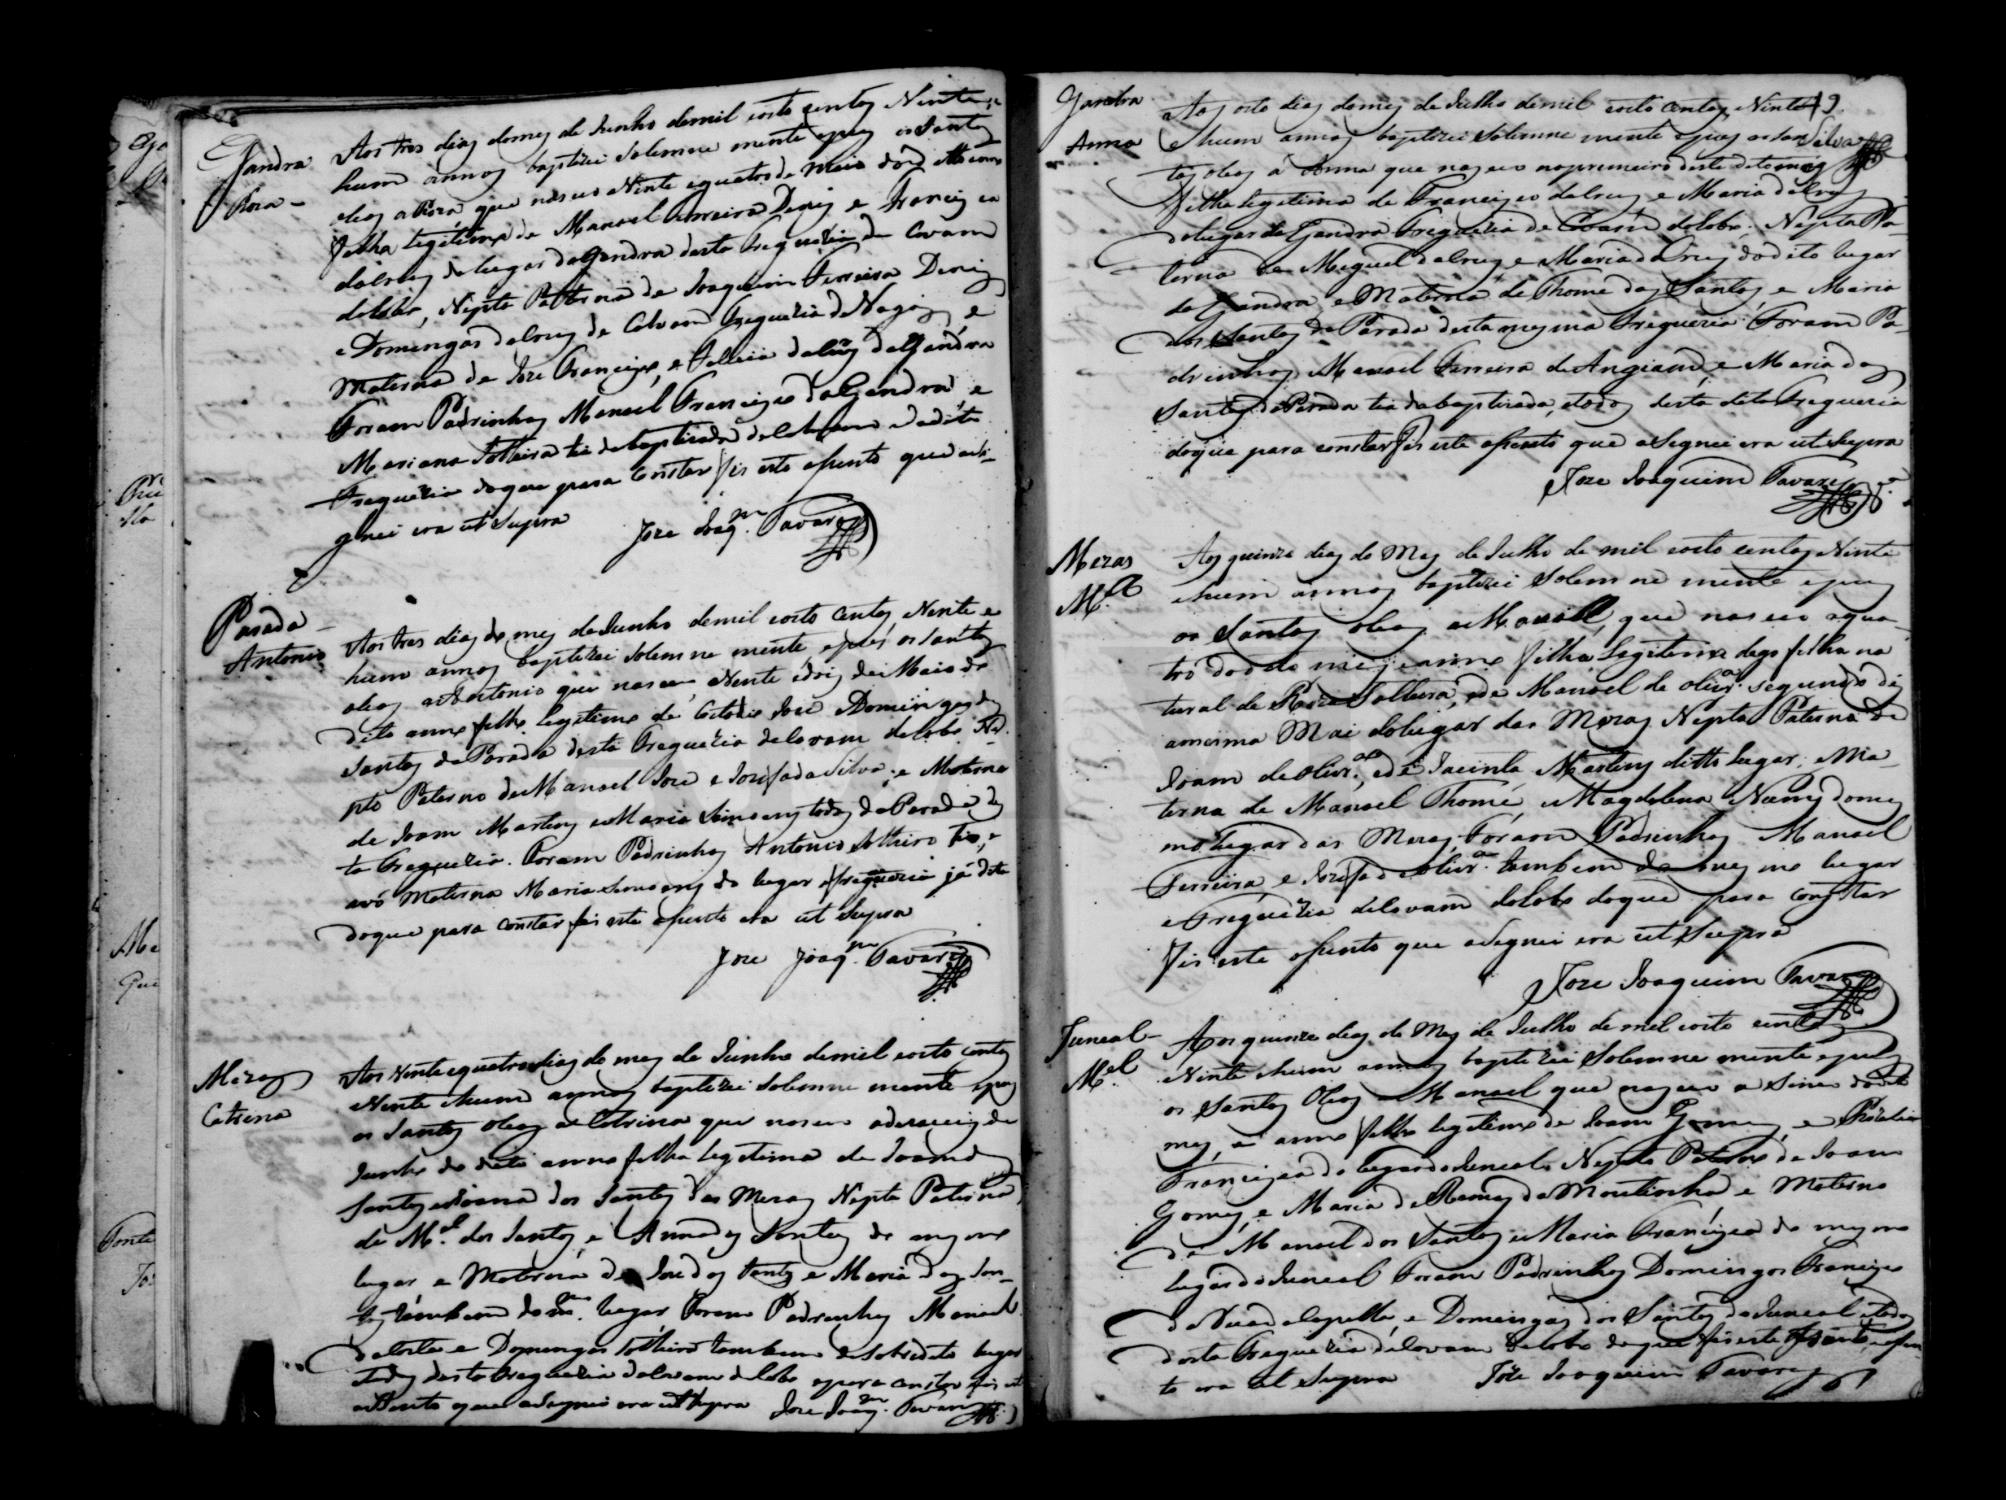 Gandra
Roza
Aos tres dias do mez de Junho de mil oito centos Vinte e
hum annos baptizei Solemne mente e puz os Santos
oleos a Roza que nasceu a Vinte e quatro de Maio do d.º anno
filha legitima de Manoel Ferreira Diniz e Francisca
da Cruz do lugar da Gandra desta Freguezia de Covam
do lobo, Nepta Paterna de Joaquim Ferreira Diniz
e Domingas da Cruz de Calvam Freguezia de Vagos, e
Materna de Joze Francisco, e da Cruz da Gandra
Foram Padrinhos Manoel Francisco da Gandra, e
Mariana Solteira tia da baptizada de Calvam e da dita
Freguezia do que para constar fis este asento que asi-
gnei era ut Supra
Joze Joaq.m Tavares
Parada
Antonio
Aos tres dias do mez de Junho de mil oito centos Vinte e
hum annos baptizei Solemne mente e puz os Santos
oleos a Antonio que nasceu a Vinte e dois de Maio do
dito anno filho legitimo de Custodio Joze e Domingas dos
Santos da Parada desta Freguezia de Covam do lobo Ne-
pto Paterno de Manoel Joze e Josefa da Silva, e Materno
de Joam Martins e Maria Simoens todos da Parada des
ta Freguezia. Foram Padrinhos Antonio Solteiro tio, e
avó Materna Maria Simoens do lugar e freguezia já dita
do que para constar fis este asento era ut Supra
Joze Joaq.m Tavares
Mezas
Catrina
Aos Vinte e quatro dias do mez de Junho de mil oito centos
Vinte e hum annos baptizei Solemne mente e puz
os Santos oleos a Catrina que nasceu a dezaseis de
Junho do dito anno filha legitima de Joam dos
Santos e Joana dos Santos das Mezas Nepta Paterna
de M.el dos Santos, e Anna dos Santos do mesmo
lugar e Materna de Joze dos Santos e Maria dos San-
tos tambem do m.mo lugar Foram Padrinhos Manoel
da Costa e Domingas Solteira tambem do sobredito lugar
todos desta Freguezia de Covam do lobo e para constar fis este
asento que asignei era ut Supra Joze Joaq.m Tavares
Gandra
Anna
49
Silva
Aos oito dias do mez de Julho de mil oito centos Vinte
e hum annos baptizei Solemne mente e puz os San
tos oleos a Anna que nasceu no primeiro deste dito mez
Filha legitima de Francisco da Cruz e Maria da Cruz
do lugar da Gandra Freguezia de Covam do lobo. Nepta Pa-
terna de Miguel da Cruz e Maria da Cruz do dito lugar
da Gandra, e Materna de Thomé dos Santos, e Maria
dos Santos da Parada desta mesma Freguezia: Foram Pa-
drinhos Manoel Ferreira de Angiam, e Maria dos
Santos da Parada tia da baptizada, e todos desta dita Freguezia
do que para constar fis este asento que asignei era ut Supra
Joze Joaquim Tavares
Mezas
M.el
Aos quinze dias do Mez de Julho de mil oito centos Vinte
e hum annos baptizei Solemne mente e puz
os Santos oleos a Manoel, que nasceu a qua-
tro do dito mez e anno filho Legitimo digo filho na
tural de Solteira, e de Manoel de Oliv.ra segundo diz
a mesma Mai do lugar das Mezas Nepto Paterno de
Joam de Oliv.ra, e de Jacinta Martins do dito lugar, e Ma-
terna de Manoel Thomé e Magdalena Nunes do mes
mo lugar das Mezas, Foram Padrinhos Manoel
Ferreira e Josefa de Oliv.ra tambem do mesmo lugar
e Freguezia de Covam do lobo do que para constar
fis este asento que asignei era ut Supra
Joze Joaquim Tavares
Juncal
M.el
Aos quinze dias do Mez de Julho de mil oito centos
Vinte e hum annos baptizei Solemne mente e puz
os Santos Oleos a Manoel que nasceu a Sinco do dito
mez, e anno filho legitimo de Joam Gomes, e
Francisca do lugar do Juncal. Nepto Paterno de Joam
Gomes, e Maria de Ramos da Moutinha, e Materno
de Manoel dos Santos e Maria Francisca do mesmo
lugar do Juncal Foram Padrinhos Domingos Francisco
da Capella, e Domingas dos Santos do Juncal e todos
desta Freguezia de Covam do lobo do que fis este asento
era ut Supra Joze Joaquim Tavares